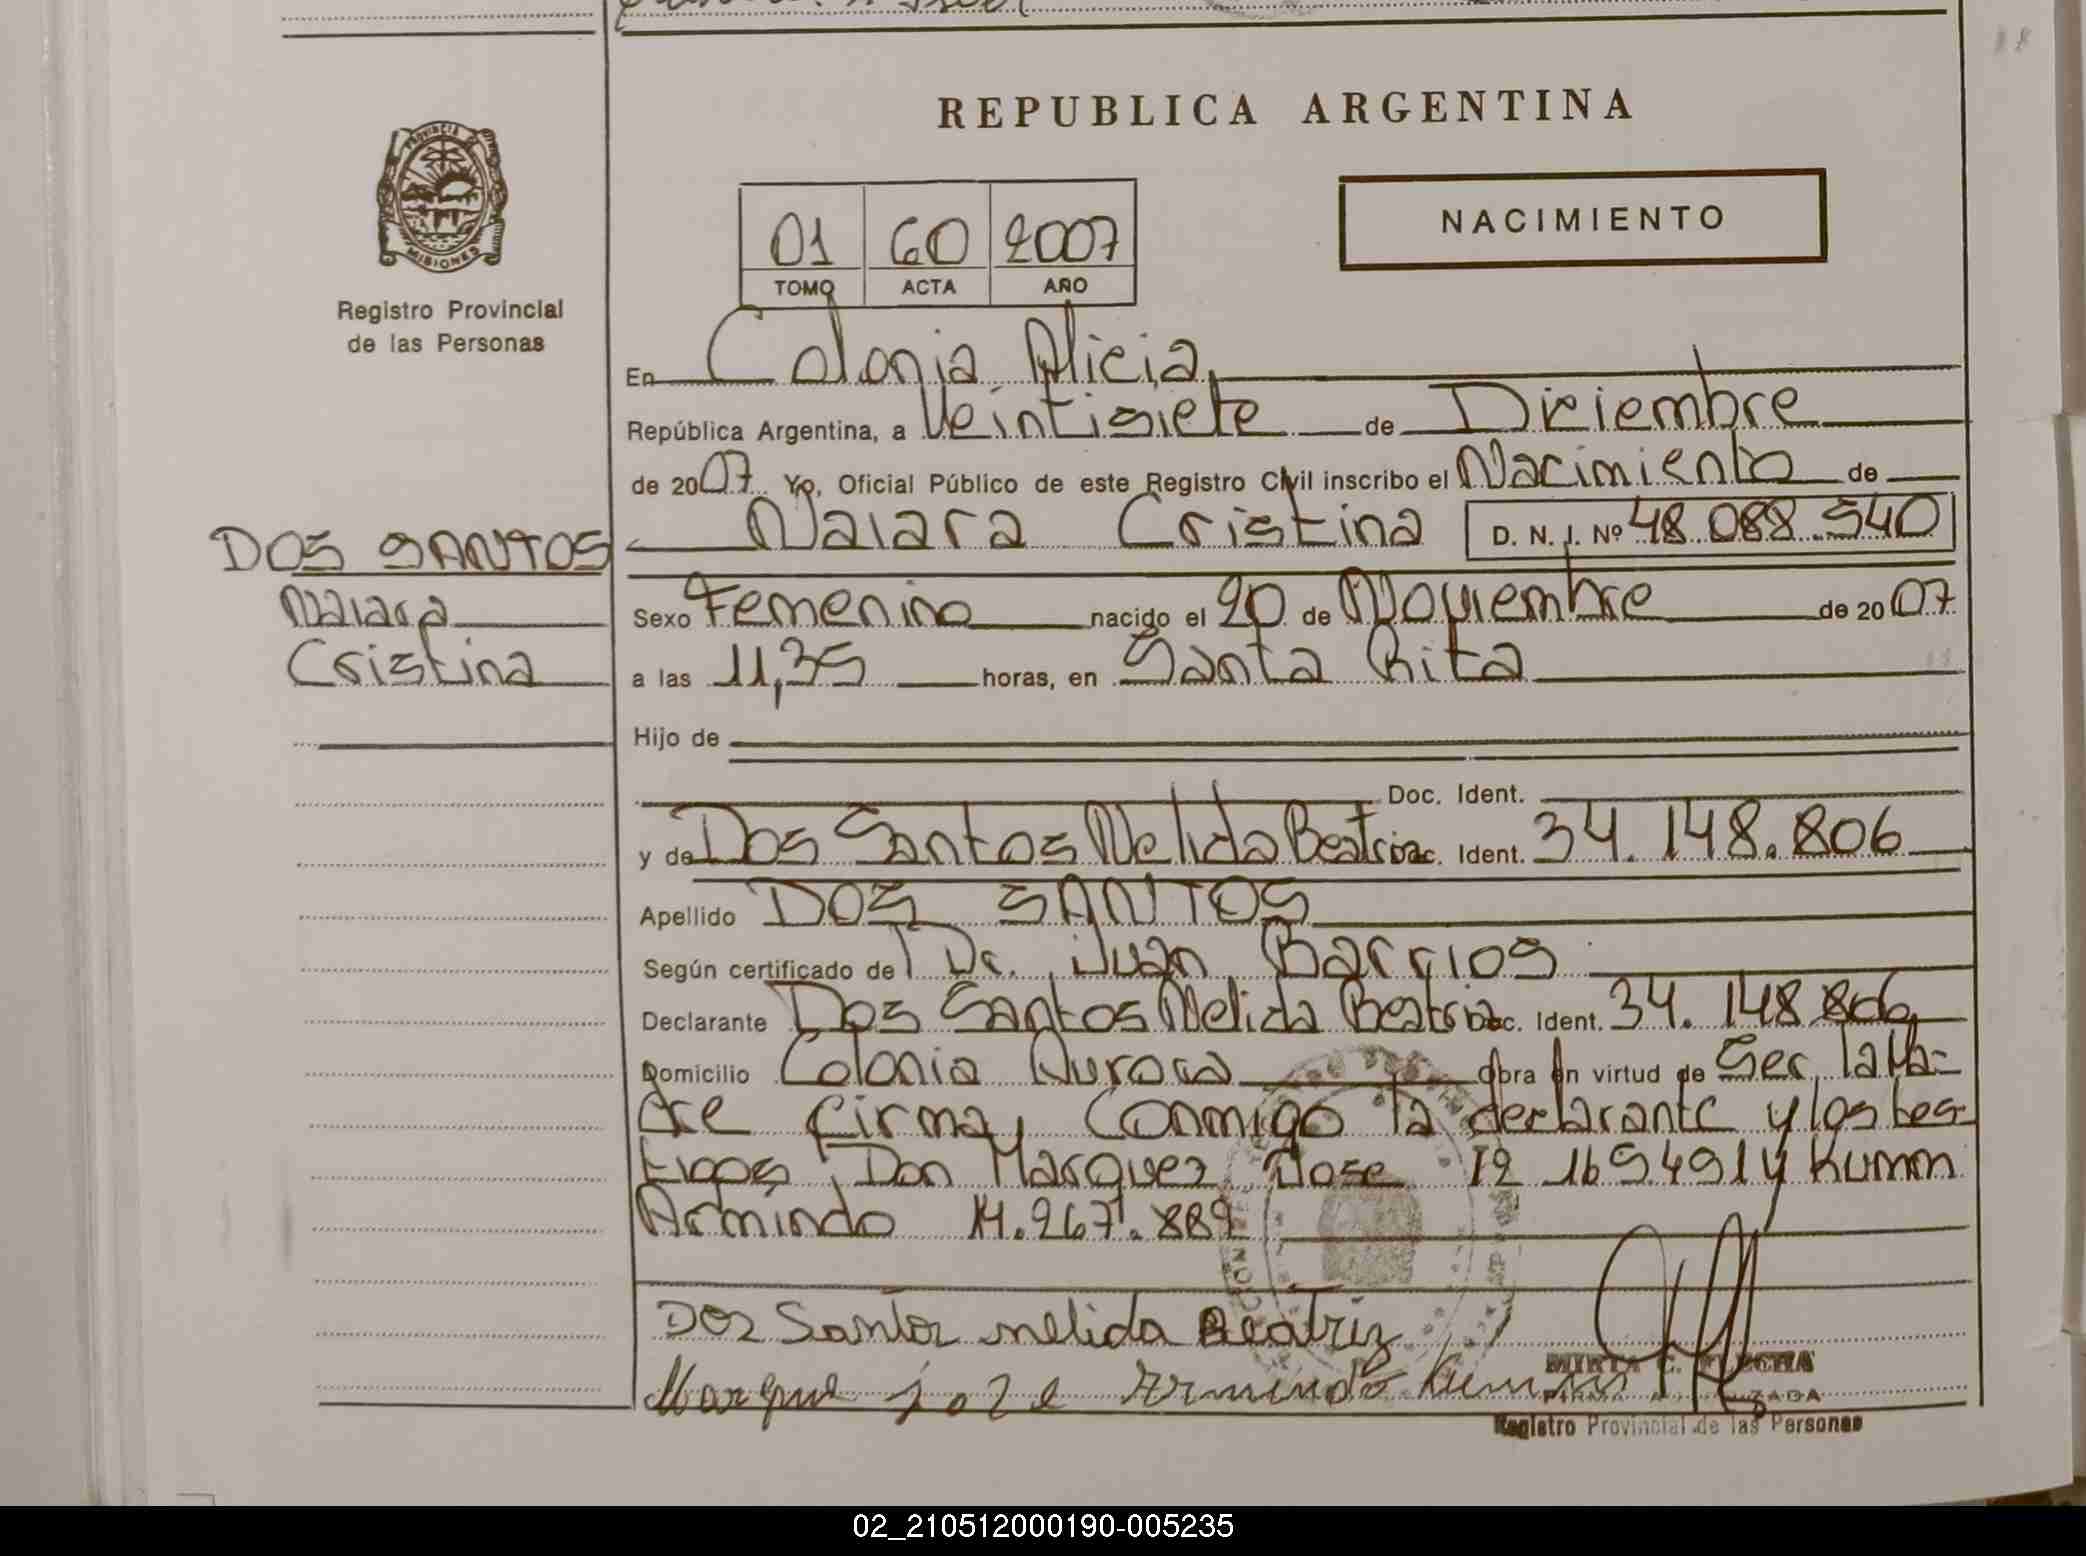 REPUBLICA ARGENTINA
PROVINCIA
MISIONES
Registro Provincial
de las Personas
NACIMIENTO
01 60 2007
TOMO ACTA AÑO
En Colonia Alicia
República Argentina, a Veintisiete de Diciembre
de 2007 Yo, Oficial Público de este Registro Civil inscribo el Nacimiento de
Naiara Cristina D. N. I. Nº 48.088.540
DOS SANTOS
Naiara
Cristina
Sexo Femenino nacido el 20 de Noviembre de 2007
a las 11,35 horas, en Santa Rita
Hijo de
Doc. Ident.
y de Dos Santos Nelida Beatriz Doc. Ident. 34.148.806
Apellido DOS SANTOS
Según certificado de Dr. Juan Barrios
Declarante Dos Santos Nelida Beatriz Doc. Ident. 34.148.806
Domicilio Colonia Aurora obra en virtud de Ser la Ma-
dre firma, Conmigo la declarante y los tes-
tigos Don Marquez Jose 12 169491 y Kumm
Armindo 14.267.889
Dos Santos nelida Beatriz
Marque jose Armindo Kumm
MIRTA C.
FIRMA AUTORIZADA
Registro Provincial de las Personas
02_210512000190-005235